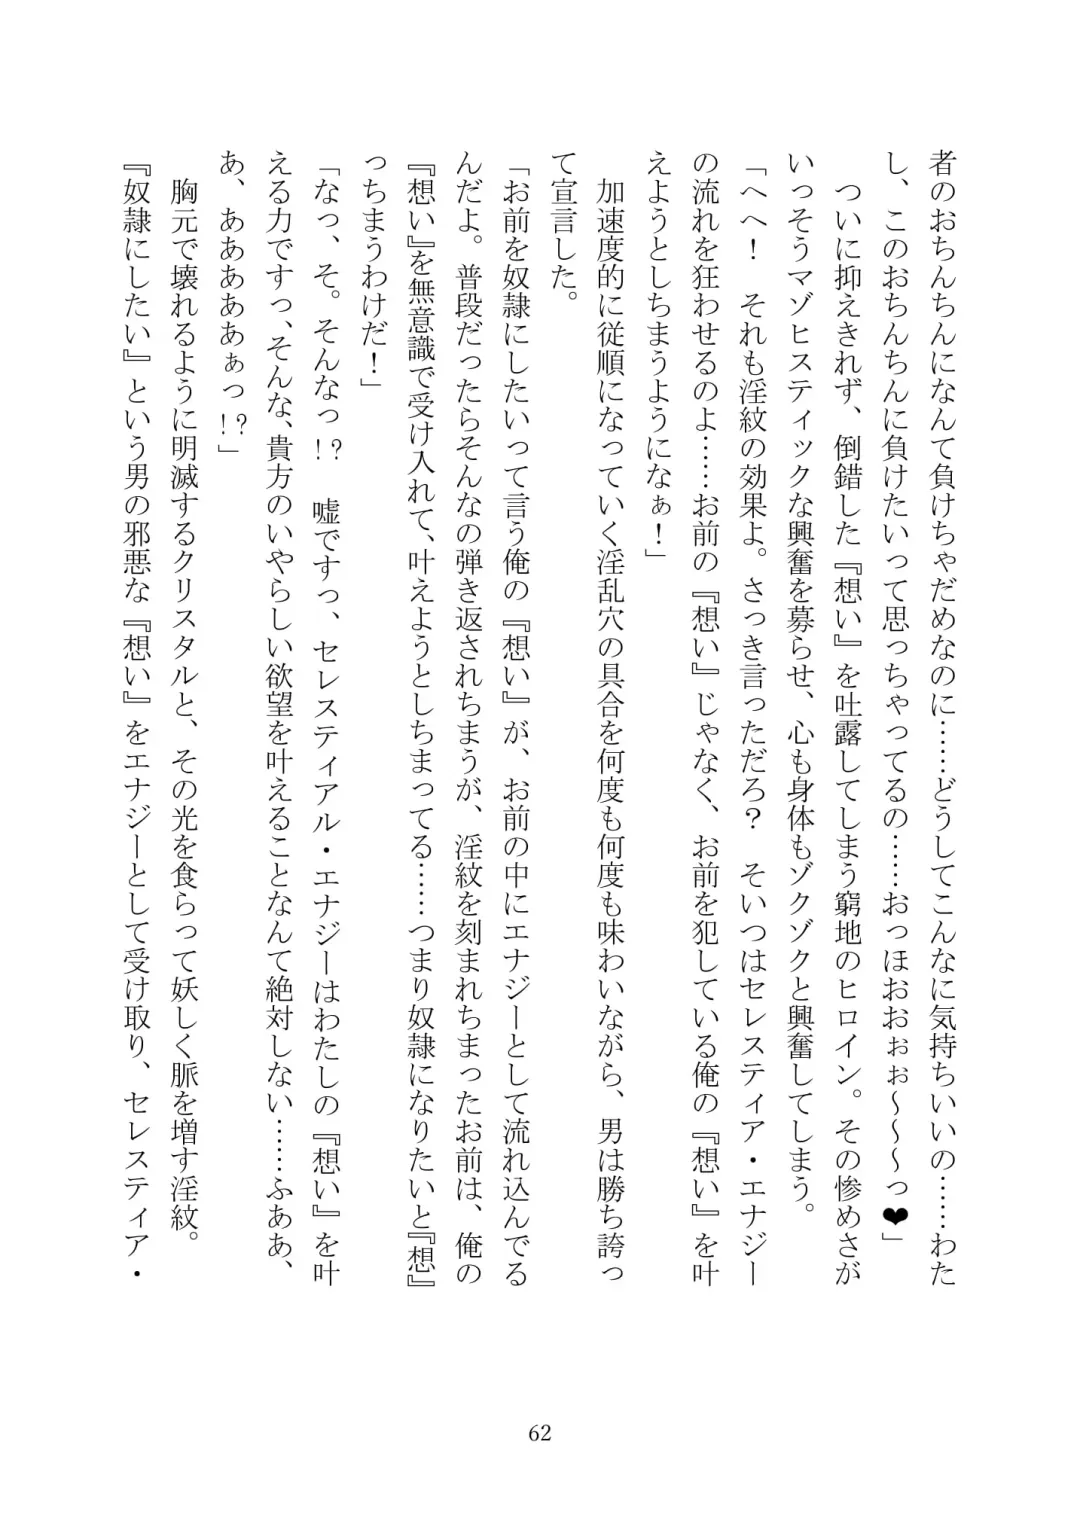 者のおちんちんになんて負けちゃだめなのに……どうしてこんなに気持ちいいの……わた
し、このおちんちんに負けたいって思っちゃってるの……おっほおおぉぉ～～～っ❤」
　ついに抑えきれず、倒錯した『想い』を吐露してしまう窮地のヒロイン。その惨めさが
いっそうマゾヒスティックな興奮を募らせ、心も身体もゾクゾクと興奮してしまう。
「へへ！　それも淫紋の効果よ。さっき言っただろ？　そいつはセレスティア・エナジー
の流れを狂わせるのよ……お前の『想い』じゃなく、お前を犯している俺の『想い』を叶
えようとしちまうようになぁ！」
　加速度的に従順になっていく淫乱穴の具合を何度も何度も味わいながら、男は勝ち誇っ
て宣言した。
「お前を奴隷にしたいって言う俺の『想い』が、お前の中にエナジーとして流れ込んでる
んだよ。普段だったらそんなの弾き返されちまうが、淫紋を刻まれちまったお前は、俺の
『想い』を無意識で受け入れて、叶えようとしちまってる……つまり奴隷になりたいと『想』
っちまうわけだ！」
「なっ、そ。そんなっ!?　嘘ですっ、セレスティアル・エナジーはわたしの『想い』を叶
える力ですっ、そんな、貴方のいやらしい欲望を叶えることなんて絶対しない……ふああ、
あ、ああああぁっ!?」
　胸元で壊れるように明滅するクリスタルと、その光を食らって妖しく脈を増す淫紋。
『奴隷にしたい』という男の邪悪な『想い』をエナジーとして受け取り、セレスティア・
62